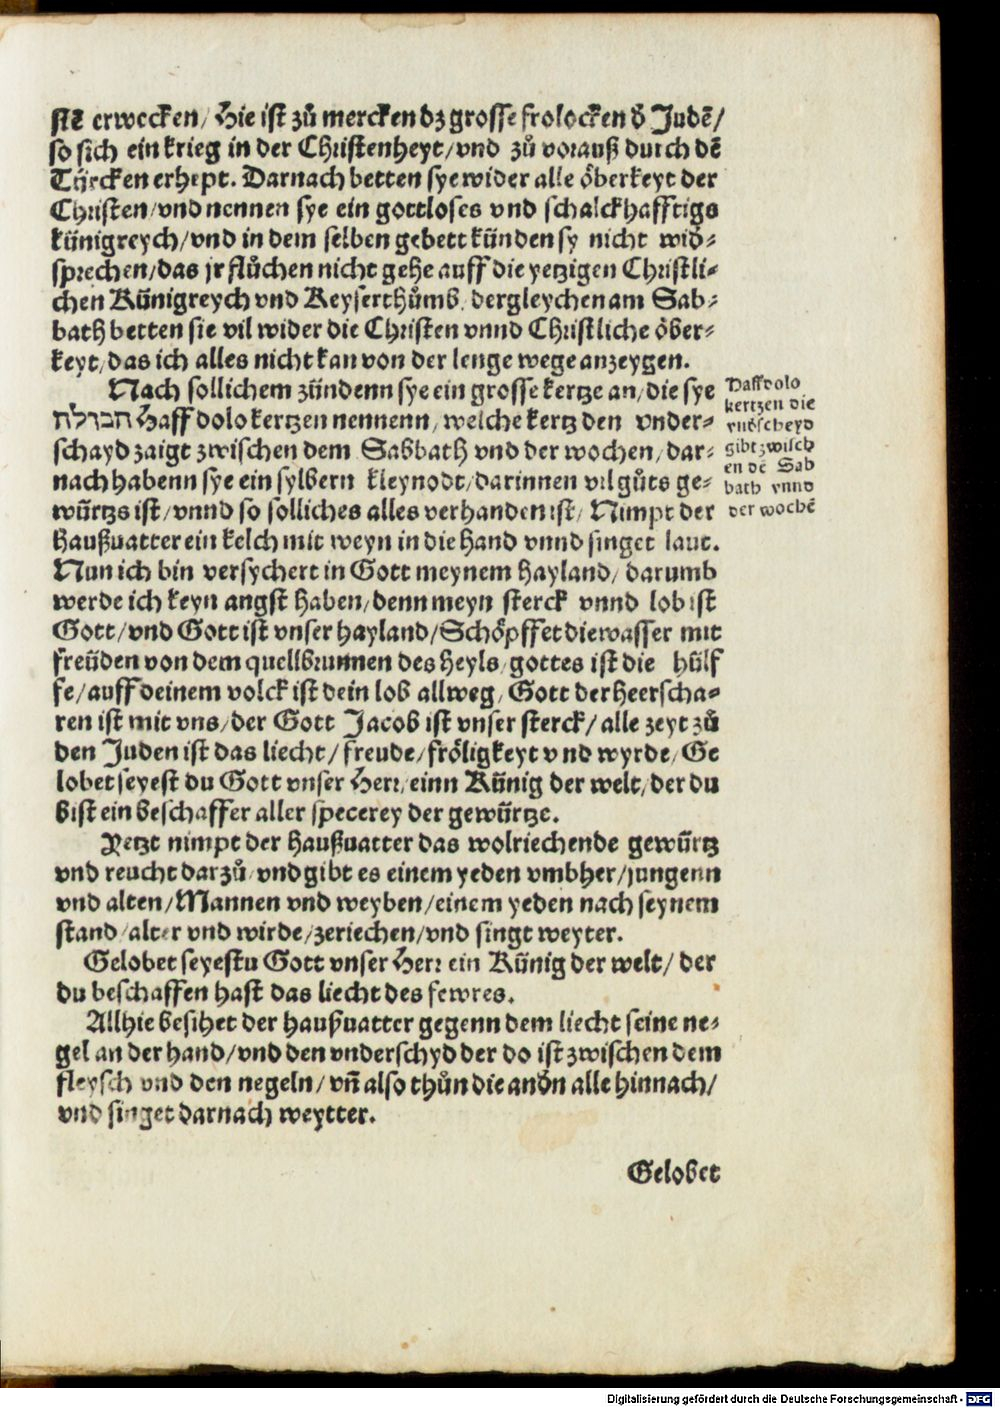 stē erwecken/ Hie ist zů mercken dz grosse frolocken ð Judē/
so sich ein krieg in der Christenheyt/vnd zů vorauß durch dē
Türcken erhept. Darnach betten sye wider alle öberkeyt der
Christen/vnd nennen sye ein gottloses vnd schalckhafftigs
künigreych/vnd in dem selben gebett künden sy nicht wið⸗
sprechen/das jr flůchen nicht gehe auff die yetzigen Christli⸗
chen Künigreych vnd Keyserthůmb/ dergleychen am Sab⸗
bath betten sie vil wider die Christen vnnd Christliche öber⸗
keyt/das ich alles nicht kan von der lenge wege anzeygen.
Nach sollichem zündenn sye ein grosse kertze an/die sye
הבדלה Haffdolo kertzen nennenn/welche kertz den vnder⸗
schayd zaigt zwischen dem Sabbath vnd der wochen/dar⸗
nach habenn sye ein sylbern kleynodt/darinnen vil gůts ge⸗
würtzs ist/vnnd so solliches alles verhanden ist/ Nimpt der
haußuatter ein kelch mit weyn in die hand vnnd singet laut.
Nun ich bin versychert in Gott meynem hayland/ darumb
werde ich keyn angst haben/denn meyn sterck vnnd lob ist
Gott/vnd Gott ist vnser hayland/Schöpffet die wasser mit
freüden von dem quellbrunnen des heyls/gottes ist die hülf
fe/auff deinem volck ist dein lob allweg/ Gott der heerscha⸗
ren ist mit vns/der Gott Jacob ist vnser sterck/ alle zeyt zů
den Juden ist das liecht/ freude/fröligkeyt vnd wyrde/Ge
lobet seyest du Gott vnser Herr/einn Künig der welt/der du
bist ein beschaffer aller specerey der gewürtze.
Yetzt nimpt der haußuatter das wolriechende gewürtz
vnd reucht darzů/vnd gibt es einem yeden vmbher/jungenn
vnd alten/Mannen vnd weyben/einem yeden nach seynem
stand/alter vnd wirde/zeriechen/vnd singt weyter.
Gelobet seyestu Gott vnser Herr ein Künig der welt/ der
du beschaffen hast das liecht des fewres.
Allhie besihet der haußuatter gegenn dem liecht seine ne⸗
gel an der hand/vnd den vnderschyd der do ist zwischen dem
fleysch vnd den negeln/vñ also thůn die anðn alle hinnach/
vnd singet darnach weytter.
Gelobet
Haffdolo
kertzen die
vnðscheyd
gibt zwisch
en dē Sab
bath vnnd
der wochē
Digitalisierung gefördert durch die Deutsche Forschungsgemeinschaft - DFG